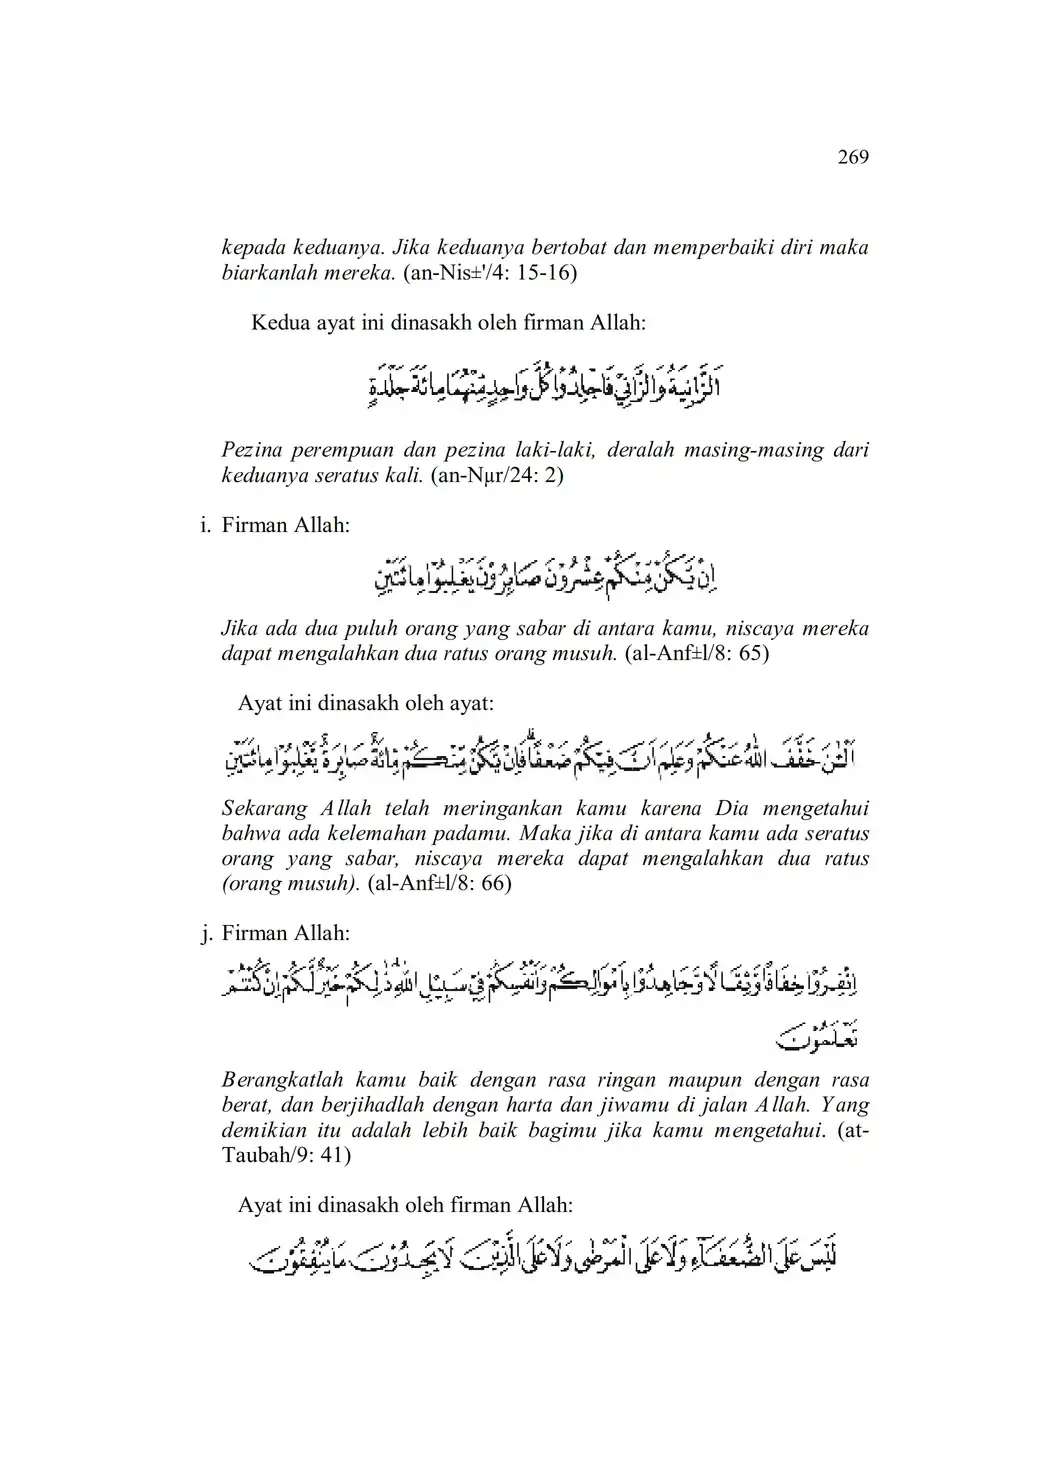 269
kepada keduanya. Jika keduanya bertobat dan memperbaiki diri maka
biarkanlah mereka. (an-Nis±'/4: 15-16)
Kedua ayat ini dinasakh oleh firman Allah:
اَلزَّانِيَةُ وَالزَّانِيْ فَاجْلِدُوْا كُلَّ وَاحِدٍ مِّنْهُمَا مِائَةَ جَلْدَةٍ
Pezina perempuan dan pezina laki-laki, deralah masing-masing dari
keduanya seratus kali. (an-Nµr/24: 2)
i. Firman Allah:
اِنْ يَّكُنْ مِّنْكُمْ عِشْرُوْنَ صَابِرُوْنَ يَغْلِبُوْا مِائَتَيْنِ
Jika ada dua puluh orang yang sabar di antara kamu, niscaya mereka
dapat mengalahkan dua ratus orang musuh. (al-Anf±l/8: 65)
Ayat ini dinasakh oleh ayat:
اَلْـٰٔنَ خَفَّفَ اللّٰهُ عَنْكُمْ وَعَلِمَ اَنَّ فِيْكُمْ ضَعْفًاۗ فَاِنْ يَّكُنْ مِّنْكُمْ مِّائَةٌ صَابِرَةٌ يَّغْلِبُوْا مِائَتَيْنِ
Sekarang Allah telah meringankan kamu karena Dia mengetahui
bahwa ada kelemahan padamu. Maka jika di antara kamu ada seratus
orang yang sabar, niscaya mereka dapat mengalahkan dua ratus
(orang musuh). (al-Anf±l/8: 66)
j. Firman Allah:
اِنْفِرُوْا خِفَافًا وَّثِقَالًا وَّجَاهِدُوْا بِاَمْوَالِكُمْ وَاَنْفُسِكُمْ فِيْ سَبِيْلِ اللّٰهِۗ ذٰلِكُمْ خَيْرٌ لَّكُمْ اِنْ كُنْتُمْ
تَعْلَمُوْنَ
Berangkatlah kamu baik dengan rasa ringan maupun dengan rasa
berat, dan berjihadlah dengan harta dan jiwamu di jalan Allah. Yang
demikian itu adalah lebih baik bagimu jika kamu mengetahui. (at-
Taubah/9: 41)
Ayat ini dinasakh oleh firman Allah:
لَيْسَ عَلَى الضُّعَفَاۤءِ وَلَا عَلَى الْمَرْضٰى وَلَا عَلَى الَّذِيْنَ لَا يَجِدُوْنَ مَا يُنْفِقُوْنَ